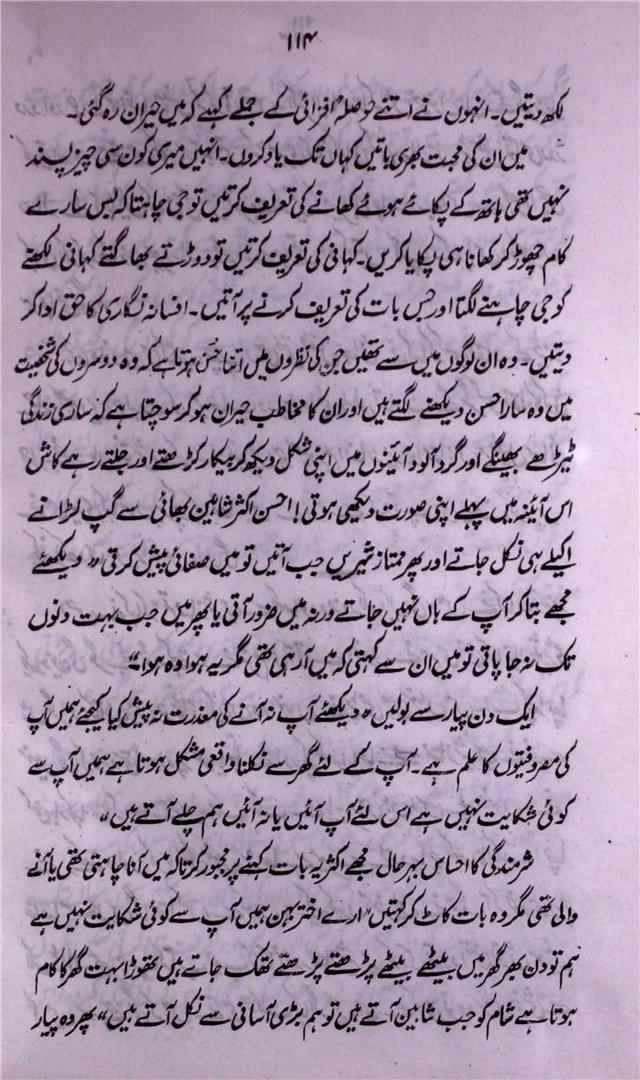 ۱۱۴
لکھ دیتیں۔ انہوں نے اتنے حوصلہ افزائی کے جملے کہے کہ میں حیران رہ گئی۔
میں ان کی محبت بھری باتیں کہاں تک یاد کروں۔ انہیں میری کون سی چیز پسند
نہیں تھی ہاتھ کے پکائے ہوئے کھانے کی تعریف کرتیں تو جی چاہتا کہ بس سارے
کام چھوڑ کر کھانا ہی پکایا کریں۔ کہانی کی تعریف کرتیں تو دوڑتے بھاگتے کہانی لکھنے
کو جی چاہنے لگتا اور جس بات کی تعریف کرنے پر آتیں۔ افسانہ نگاری کا حق ادا کر
دیتیں۔ وہ ان لوگوں میں سے تھیں جن کی نظروں میں اتنا حسن ہوتا ہے کہ وہ دوسروں کی شخصیت
میں وہ سارا حسن دیکھنے لگتے ہیں اور ان کا مخاطب حیران ہو کر سوچتا ہے کہ ساری زندگی
ٹیڑھے بھینگے اور گرد آلود آئینوں میں اپنی شکل دیکھ کر بیکار کڑھتے اور جلتے رہے کاش
اس آئینہ میں پہلے اپنی صورت دیکھی ہوتی! احسن اکثر شاہین بھائی سے گپ لڑانے
اکیلے ہی نکل جاتے اور پھر ممتاز شیریں جب آتیں تو میں صفائی پیش کرتی "دیکھئے
مجھے بتا کر آپ کے ہاں نہیں جاتے ورنہ میں ضرور آتی یا پھر میں جب بہت دنوں
تک نہ جا پاتی تو میں ان سے کہتی کہ میں آ رہی تھی مگر یہ ہوا وہ ہوا۔"
ایک دن پیار سے بولیں "دیکھئے آپ نہ آنے کی معذرت نہ پیش کیا کیجئے ہمیں آپ
کی مصروفیتوں کا علم ہے۔ آپ کے لئے گھر سے نکلنا واقعی مشکل ہوتا ہے ہمیں آپ سے
کوئی شکایت نہیں ہے اس لئے آپ آئیں یا نہ آئیں ہم چلے آتے ہیں"
شرمندگی کا احساس بہر حال مجھے اکثر یہ بات کہنے پر مجبور کرتا کہ میں آنا چاہتی تھی یا آنے
والی تھی مگر وہ بات کاٹ کر کہتیں "ارے اختر بہن ہمیں آپ سے کوئی شکایت نہیں ہے
ہم تو دن بھر گھر میں بیٹھے بیٹھے پڑھتے پڑھتے تھک جاتے ہیں تھوڑا بہت گھر کا کام
ہوتا ہے شام کو جب شاہین آتے ہیں تو ہم بڑی آسانی سے نکل آتے ہیں" پھر وہ پیار